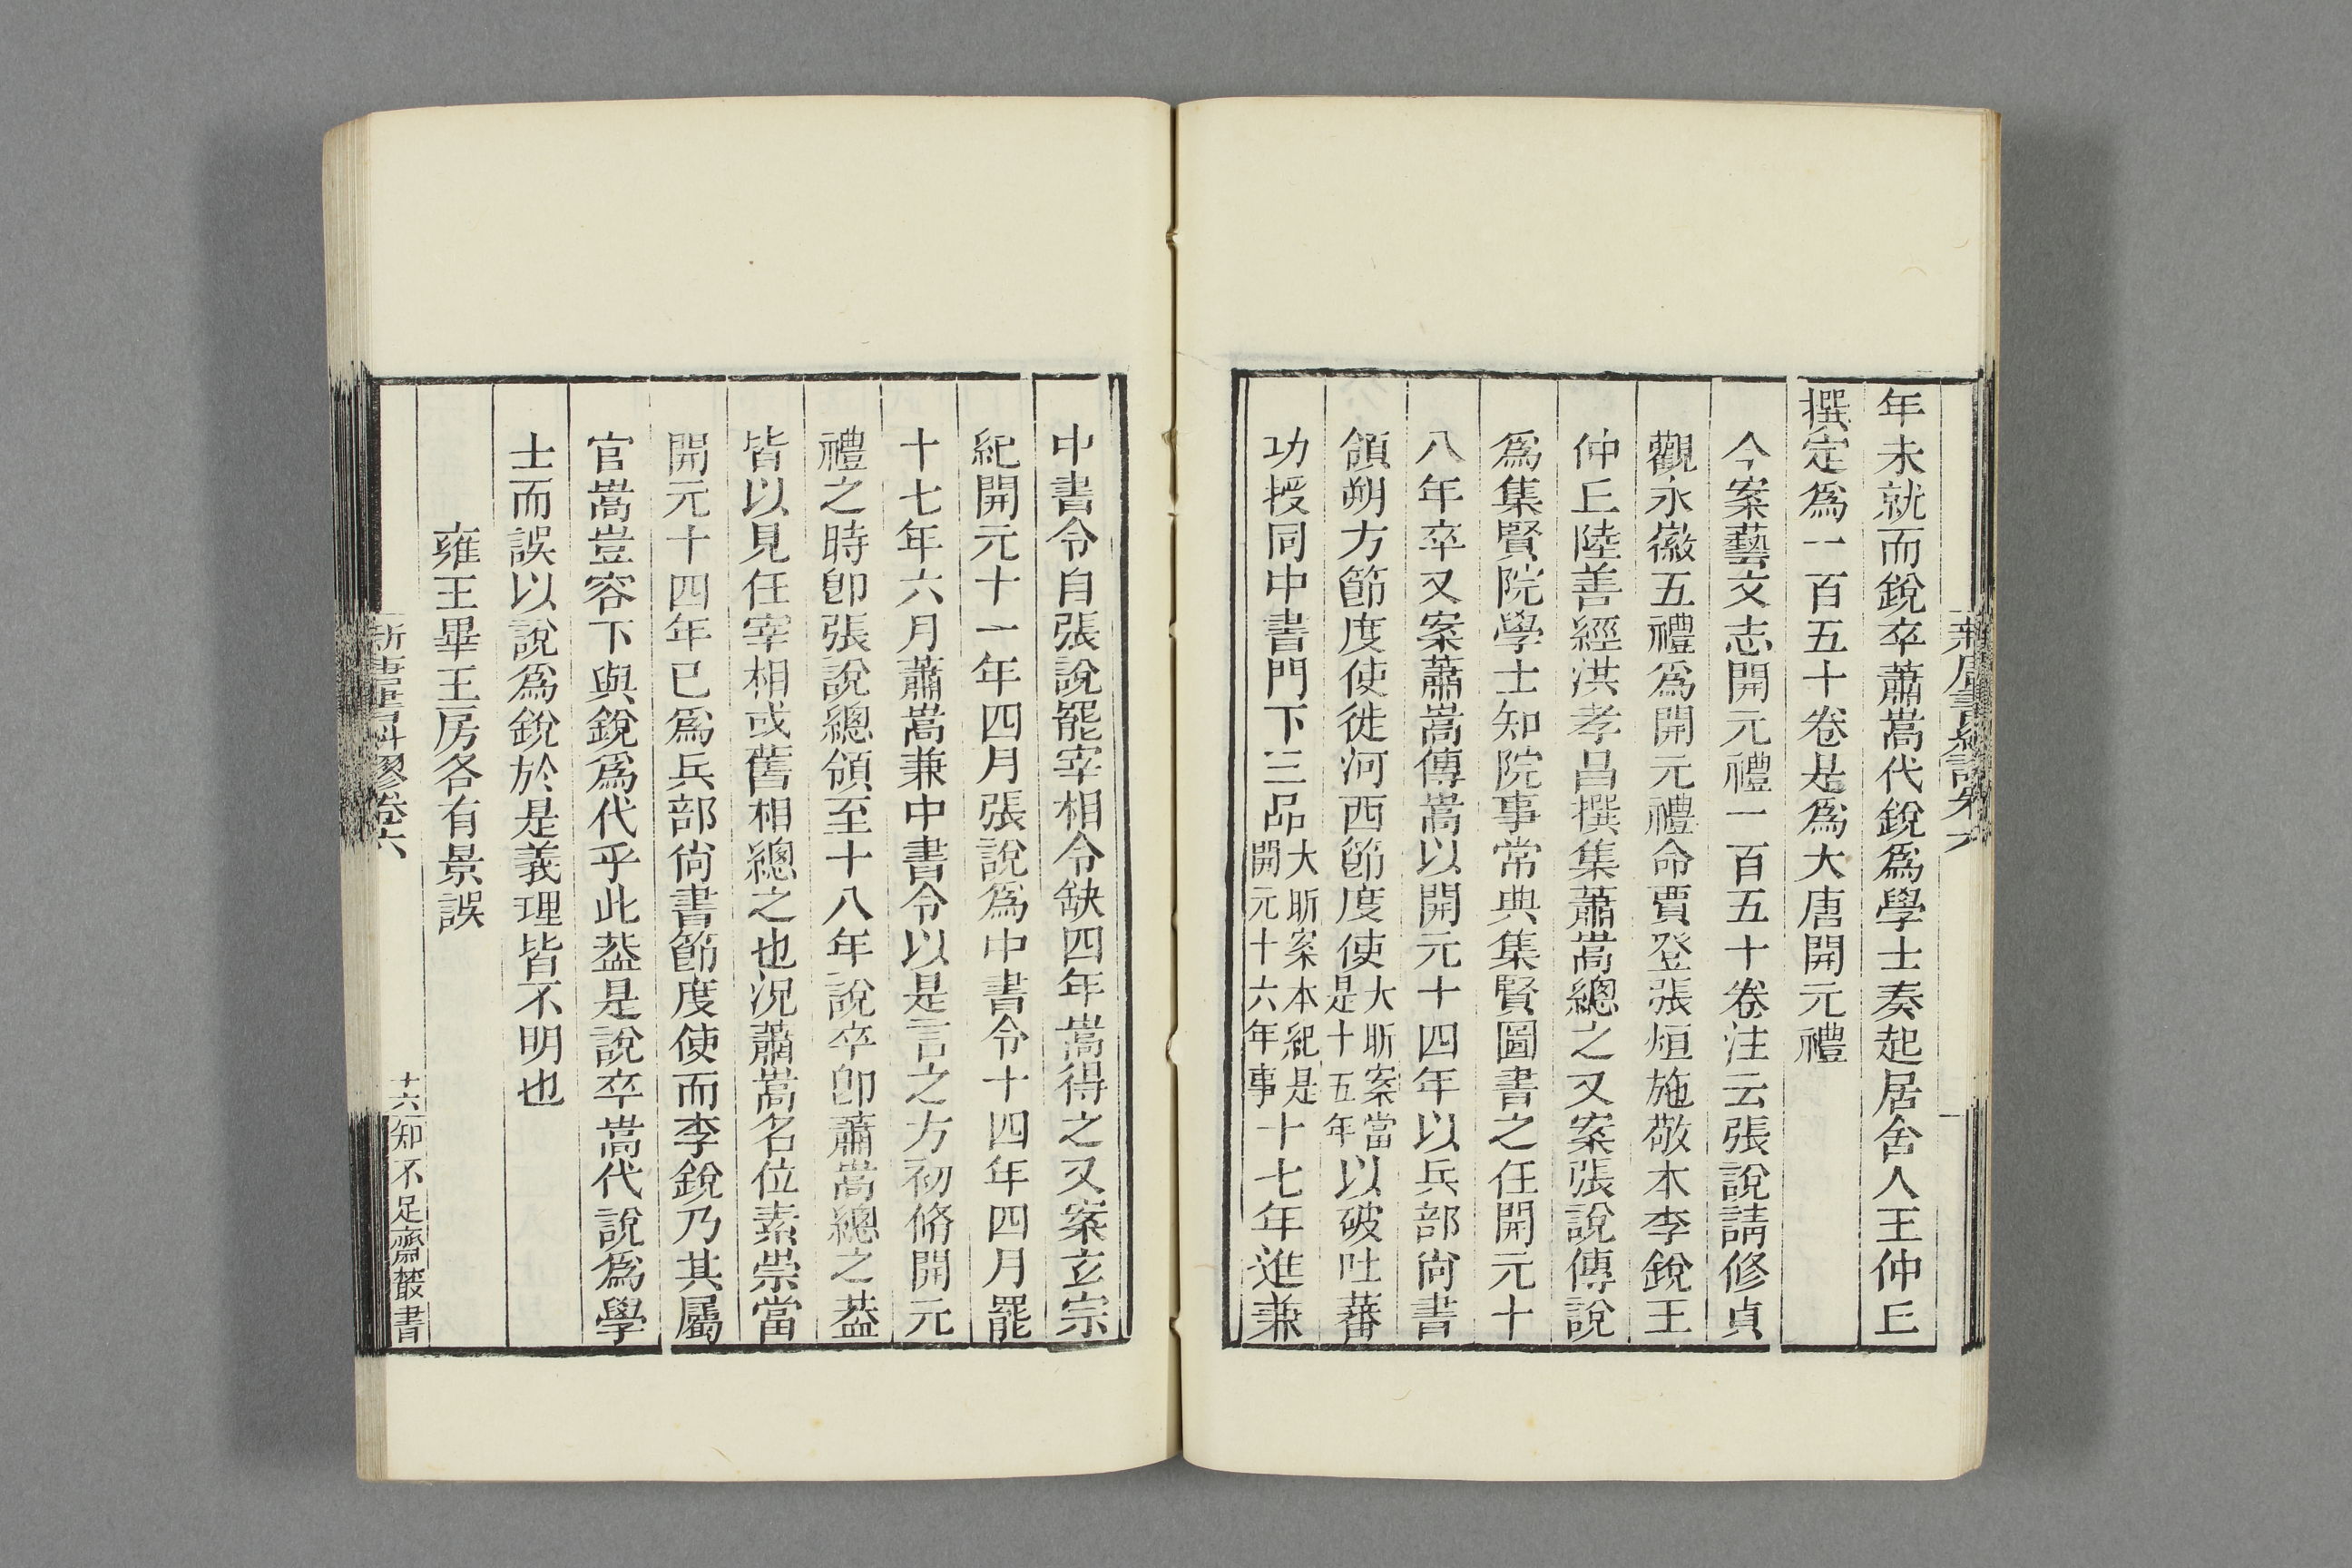 年未就而銳卒蕭嵩代銳爲學士奏起居舍人王仲丘
撰定爲一百五十卷是爲大唐開元禮
今案藝文志開元禮一百五十卷注云張說請修貞
觀永徽五禮爲開元禮命賈登張烜施敬本李銳王
仲丘陸善經洪孝昌撰集蕭嵩總之又案張說傳說
爲集賢院學士知院事常典集賢圖書之任開元十
八年卒又案蕭嵩傳嵩以開元十四年以兵部尙書
領朔方節度使徙河西節度使大昕案當是十五年以破吐蕃
功授同中書門下三品大昕案本紀是開元十六年事十七年進兼
中書令自張說罷宰相令缺四年嵩得之又案玄宗
紀開元十一年四月張說爲中書令十四年四月罷
十七年六月蕭嵩兼中書令以是言之方初脩開元
禮之時卽張說總領至十八年說卒卽蕭嵩總之葢
皆以見任宰相或舊相總之也況蕭嵩名位素崇當
開元十四年已爲兵部尙書節度使而李銳乃其屬
官嵩豈容下與銳爲代乎此葢是說卒嵩代說爲學
士而誤以說爲銳於是義理皆不明也
雍王畢王房各有景誤
卷六
十六
知不足齋叢書